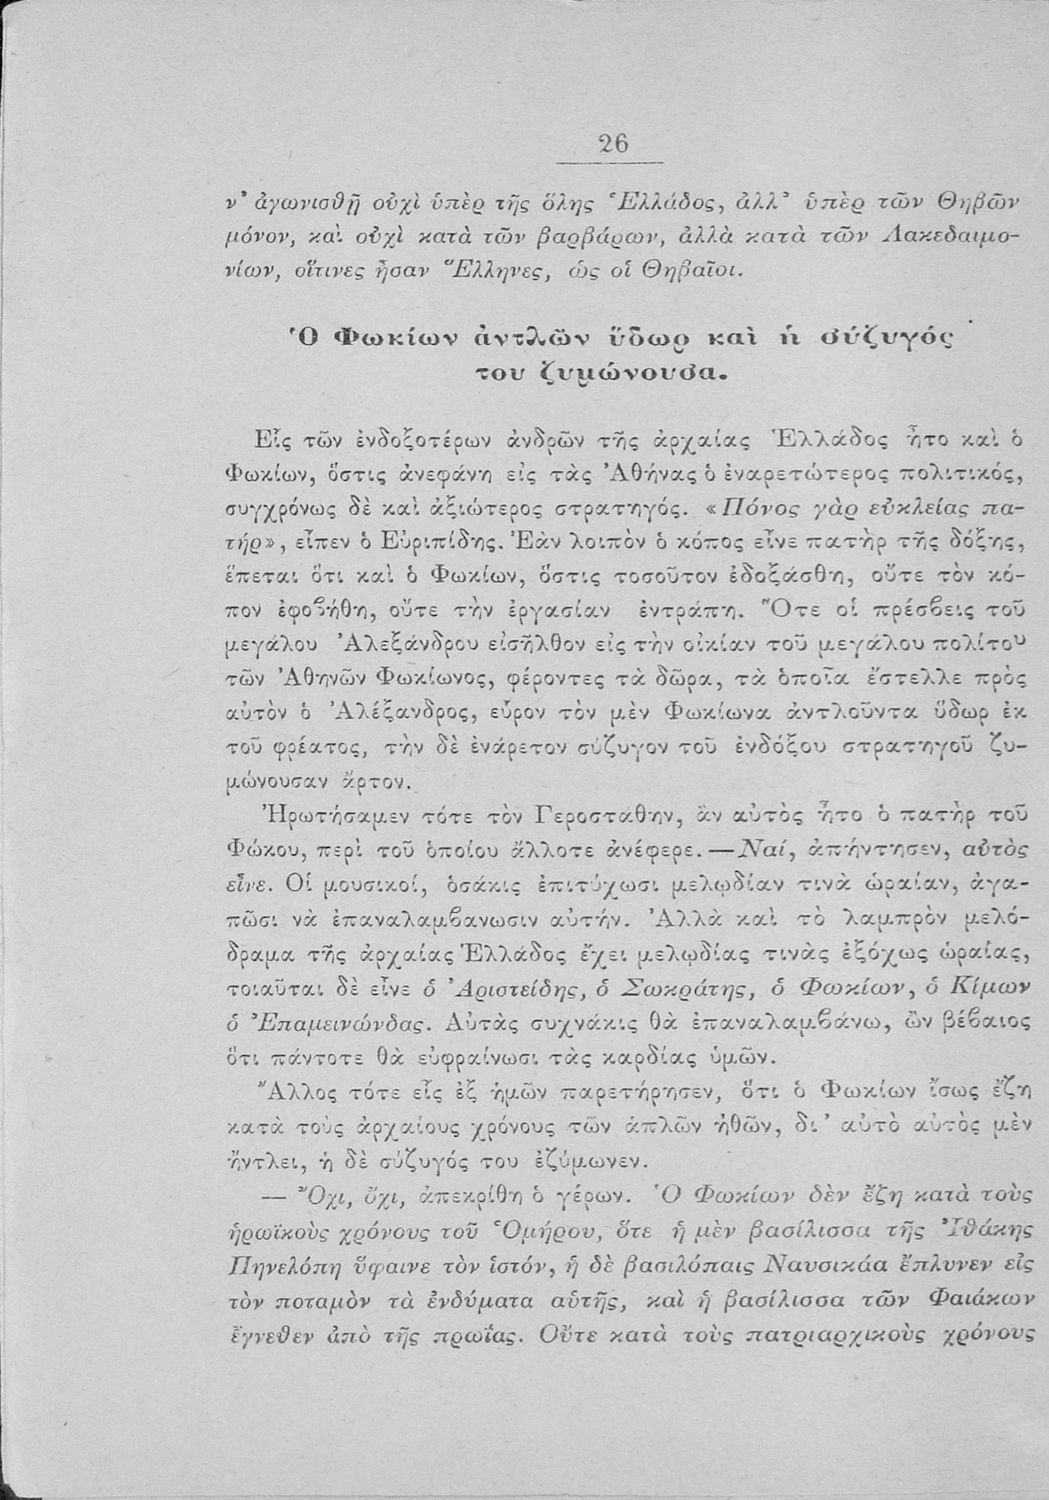 26
ν' ἀγωνισθῇ οὐχὶ ὑπὲρ τῆς ὅλης Ἑλλάδος, ἀλλ' ὑπὲρ τῶν Θηβῶν
μόνον, καὶ οὐχὶ κατὰ τῶν βαρβάρων, ἀλλὰ κατὰ τῶν Λακεδαιμο-
νίων, οἵτινες ἦσαν Ἕλληνες, ὡς οἱ Θηβαῖοι.
Ὁ Φωκίων ἀντλῶν ὕδωρ καὶ ἡ σύζυγός
του ζυμώνουσα.
Εἷς τῶν ἐνδοξοτέρων ἀνδρῶν τῆς ἀρχαίας Ἑλλάδος ἦτο καὶ ὁ
Φωκίων, ὅστις ἀνεφάνη εἰς τὰς Ἀθήνας ὁ ἐναρετώτερος πολιτικός,
συγχρόνως δὲ καὶ ἀξιώτερος στρατηγός. «Πόνος γὰρ εὐκλείας πα-
τήρ», εἶπεν ὁ Εὐριπίδης. Ἐὰν λοιπὸν ὁ κόπος εἶνε πατὴρ τῆς δόξης,
ἕπεται ὅτι καὶ ὁ Φωκίων, ὅστις τοσοῦτον ἐδοξάσθη, οὔτε τὸν κό-
πον ἐφοβήθη, οὔτε τὴν ἐργασίαν ἐντράπη. Ὅτε οἱ πρέσβεις τοῦ
μεγάλου Ἀλεξάνδρου εἰσῆλθον εἰς τὴν οἰκίαν τοῦ μεγάλου πολίτου
τῶν Ἀθηνῶν Φωκίωνος, φέροντες τὰ δῶρα, τὰ ὁποῖα ἔστελλε πρὸς
αὐτὸν ὁ Ἀλέξανδρος, εὗρον τὸν μὲν Φωκίωνα ἀντλοῦντα ὕδωρ ἐκ
τοῦ φρέατος, τὴν δὲ ἐνάρετον σύζυγον τοῦ ἐνδόξου στρατηγοῦ ζυ-
μώνουσαν ἄρτον.
Ἠρωτήσαμεν τότε τὸν Γεροστάθην, ἂν αὐτὸς ἦτο ὁ πατὴρ τοῦ
Φώκου, περὶ τοῦ ὁποίου ἄλλοτε ἀνέφερε. — Ναί, ἀπήντησεν, αὐτὸς
εἶνε. Οἱ μουσικοί, ὁσάκις ἐπιτύχωσι μελῳδίαν τινὰ ὡραίαν, ἀγα-
πῶσι νὰ ἐπαναλαμβανωσιν αὐτήν. Ἀλλὰ καὶ τὸ λαμπρὸν μελό-
δραμα τῆς ἀρχαίας Ἑλλάδος ἔχει μελῳδίας τινὰς ἐξόχως ὡραίας,
τοιαῦται δὲ εἶνε ὁ Ἀριστείδης, ὁ Σωκράτης, ὁ Φωκίων, ὁ Κίμων
ὁ Ἐπαμεινώνδας. Αὐτὰς συχνάκις θὰ ἐπαναλαμβάνω, ὢν βέβαιος
ὅτι πάντοτε θὰ εὐφραίνωσι τὰς καρδίας ὑμῶν.
Ἄλλος τότε εἷς ἐξ ἡμῶν παρετήρησεν, ὅτι ὁ Φωκίων ἴσως ἔζη
κατὰ τοὺς ἀρχαίους χρόνους τῶν ἁπλῶν ἠθῶν, δι' αὐτὸ αὐτὸς μὲν
ἤντλει, ἡ δὲ σύζυγός του ἐζύμωνεν.
— Ὄχι, ὄχι, ἀπεκρίθη ὁ γέρων. Ὁ Φωκίων δὲν ἔζη κατὰ τοὺς
ἡρωϊκοὺς χρόνους τοῦ Ὁμήρου, ὅτε ἡ μὲν βασίλισσα τῆς Ἰθάκης
Πηνελόπη ὕφαινε τὸν ἱστόν, ἡ δὲ βασιλόπαις Ναυσικάα ἔπλυνεν εἰς
τὸν ποταμὸν τὰ ἐνδύματα αὑτῆς, καὶ ἡ βασίλισσα τῶν Φαιάκων
ἔγνεθεν ἀπὸ τῆς πρωΐας. Οὔτε κατὰ τοὺς πατριαρχικοὺς χρόνους